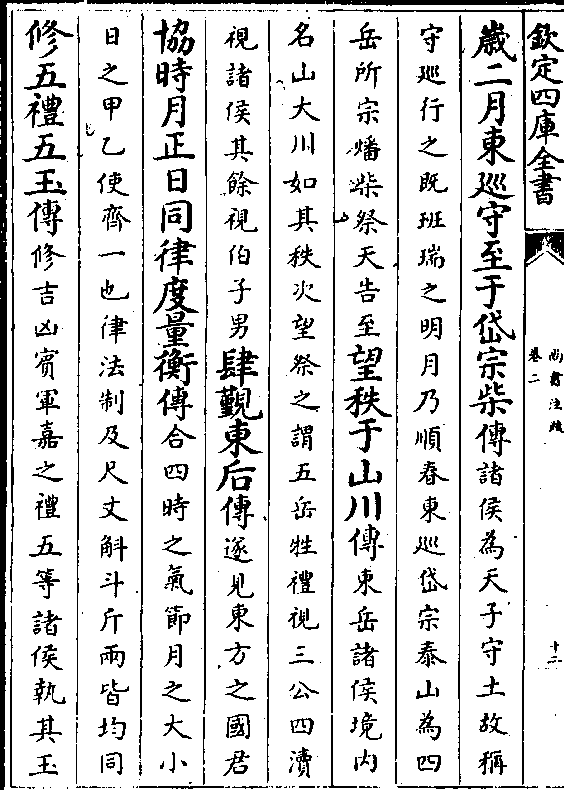 欽定四庫全書
尚書注疏
卷二
十二
歲二月東廵守至于岱宗柴傳諸侯為天子守土故稱
守廵行之既班瑞之明月乃順春東廵岱宗泰山為四
岳所宗燔柴祭天告至望秩于山川傳東岳諸侯境内
名山大川如其秩次望祭之謂五岳牲禮視三公四瀆
視諸侯其餘視伯子男肆覲東后傳遂見東方之國君
協時月正日同律度量衡傳合四時之氣節月之大小
日之甲乙使齊一也律法制及尺丈斛斗斤兩皆均同
修五禮五玉傳修吉凶賓軍嘉之禮五等諸侯執其玉